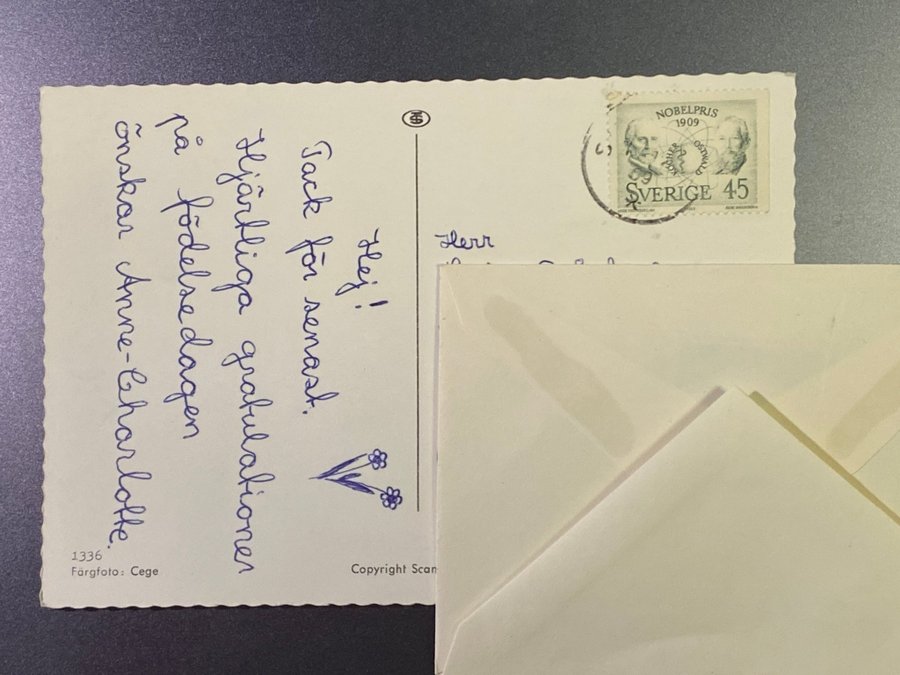 Hej!
Tack för senast.
Hjärtliga gratulationer
på födelsedagen
önskar Anne-Charlotte.
NOBELPRIS
1909
KOCHER
OSTWALD
SVERIGE 45
Herr
1336
Färgfoto: Cege
Copyright Scan